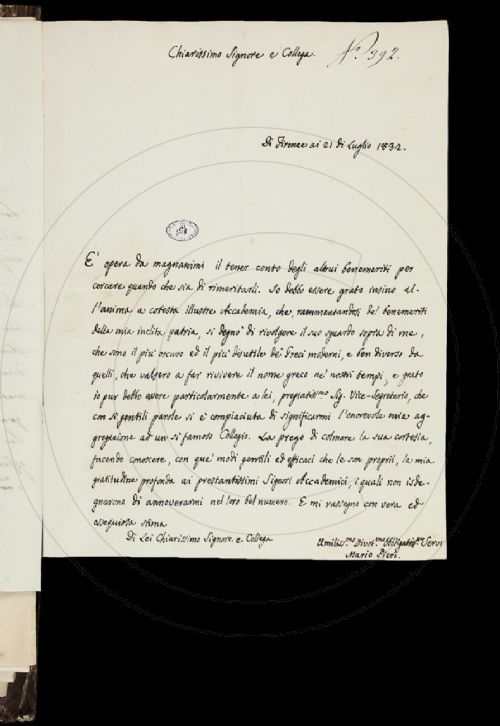 Chiarissimo Signore e Collega.
N.o 392.
Di Firenze ai 21 di Luglio 1832.
E' opera da magnanimi il tener conto degli altrui benemeriti per
cercare quando che sia di rimeritarli. Io debbo essere grato insino al-
l'anima a cotesta illustre Accademia, che, rammentandosi de' benemeriti
della mia inclita patria, si degnò di rivolgere il suo sguardo sopra di me,
che sono il più oscuro ed il più disutile de' Greci moderni, e ben diverso da
quelli, che valsero a far rivivere il nome greco ne' nostri tempi, e grato
io pur debbo essere particolarmente a lei, pregiatissimo Sig. Vice-Segretario, che
con sì gentili parole si è compiaciuta di significarmi l'onorevole mia ag-
gregazione ad un sì famoso Collegio. La prego di colmare la sua cortesia,
facendo conoscere, con que' modi gentili ed efficaci che le son proprii, la mia
gratitudine profonda ai prestantissimi Signori Accademici, i quali non isde-
gnarono di annoverarmi nel loro bel numero. E mi rassegno con vera ed
ossequiosa stima
Di Lei Chiarissimo Signore e Collega
Umiliss.mo Divot.mo Obbligatiss.mo Servo
Mario Pieri.